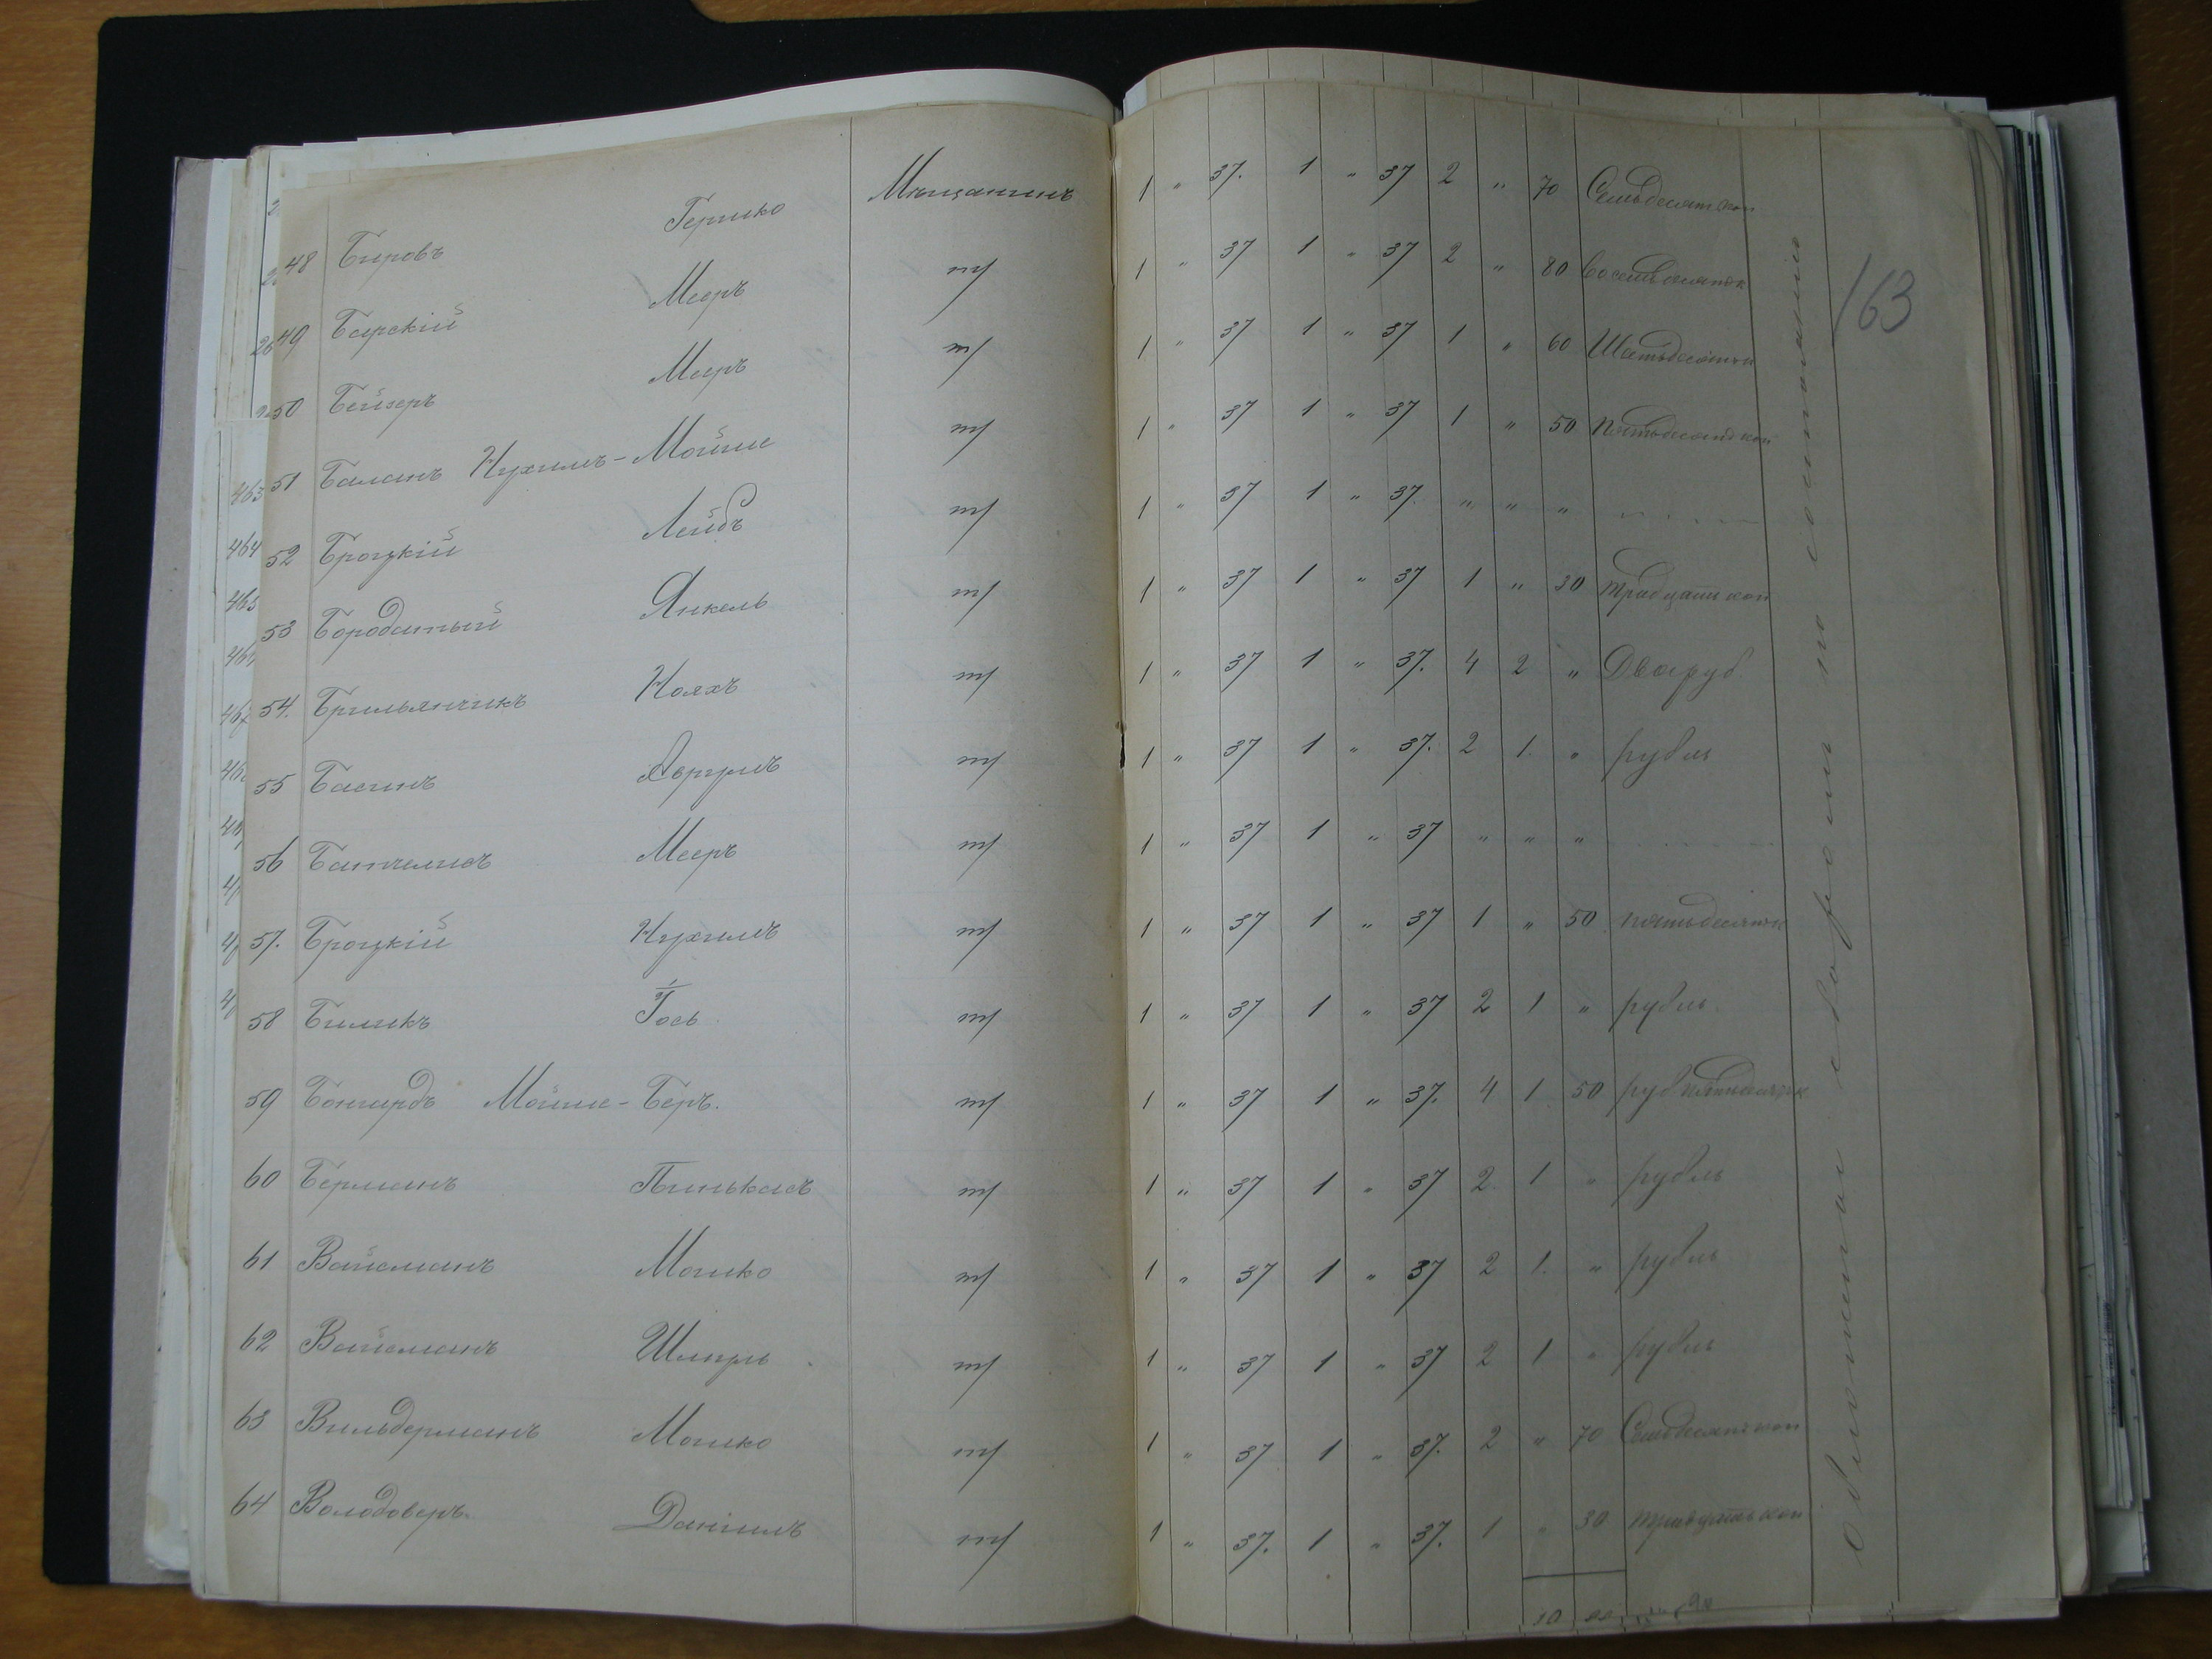 163
48 Бировъ Гершко Мѣщанинъ 1 " 37. 1 " 37 2 " 70 Семьдесят коп
49 Барскій Мееръ т/ 1 " 37 1 " 37 2 " 80
50 Бейзеръ Мееръ т/ 1 " 37 1 " 37 1 " 60
51 Баланъ Нухимъ-Мойше т/ 1 " 37 1 " 37 1 " 50 Пятьдесятъ коп
52 Броцкій Лейбъ т/ 1 " 37 1 " 37. " " "
53 Бородатый Янкель т/ 1 " 37 1 " 37 1 " 30 тридцать коп
54. Брильянчикъ Нояхъ т/ 1 " 37 1 " 37. 4 2 " Два руб
55 Басинъ т/ 1 " 37 1 " 37. 2 1. " рубль
56 Мееръ т/ 1 " 37 1 " 37 " " "
57. Броцкій Нухимъ т/ 1 " 37 1 " 37 1 " 50 пятьдесятъ к
58 Биликъ Іось т/ 1 " 37 1 " 37 2 1 " рубль
59 Бонгардъ Мойше-Беръ. т/ 1 " 37 1 " 37. 4 1 50 руб пятьдесят к
60 Берманъ Пинькасъ т/ 1 " 37 1 " 37 2 1 " рубль
61 Вайсманъ Мошко т/ 1 " 37 1 " 37 2 1. " рубль
62 Вайсманъ Шмуль т/ 1 " 37 1 " 37 2 1 " рубль
63 Вильдерманъ Мошко т/ 1 " 37 1 " 37. 2 " 70 Семьдесятъ коп
64 Володоверъ Даніилъ т/ 1 " 37. 1 " 37. 1 " 30 тридцать коп